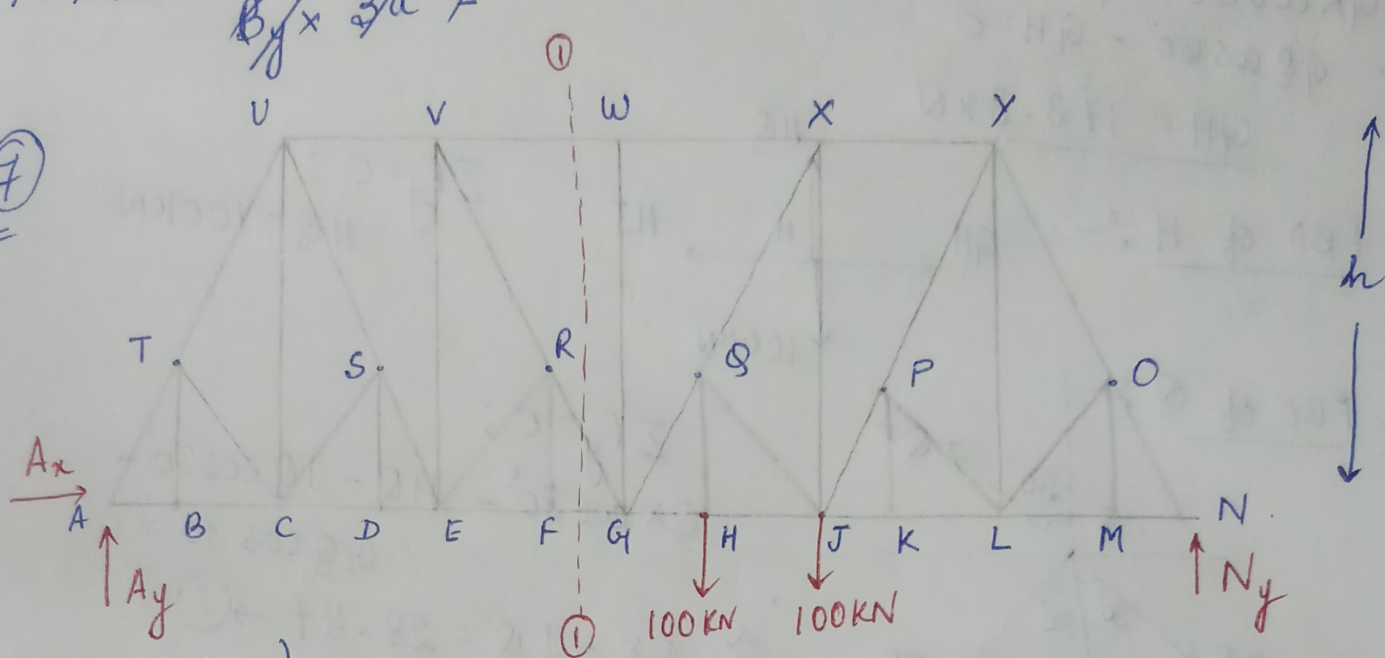 By x 3a
①
U V W X Y
⑦
h
T S R Q P O
Ax
A B C D E F G H J K L M N
Ay 100KN 100KN Ny
①